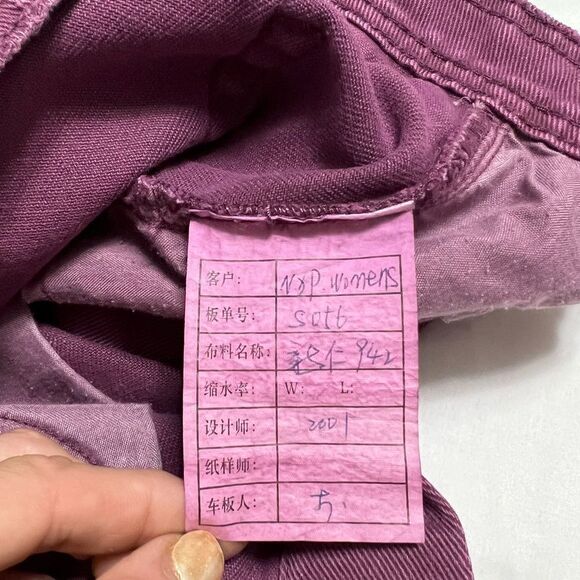 客户: NYP. womens
板单号: S0516
布料名称: 仁 942
缩水率: W: L:
设计师: 2001
纸样师:
车板人: